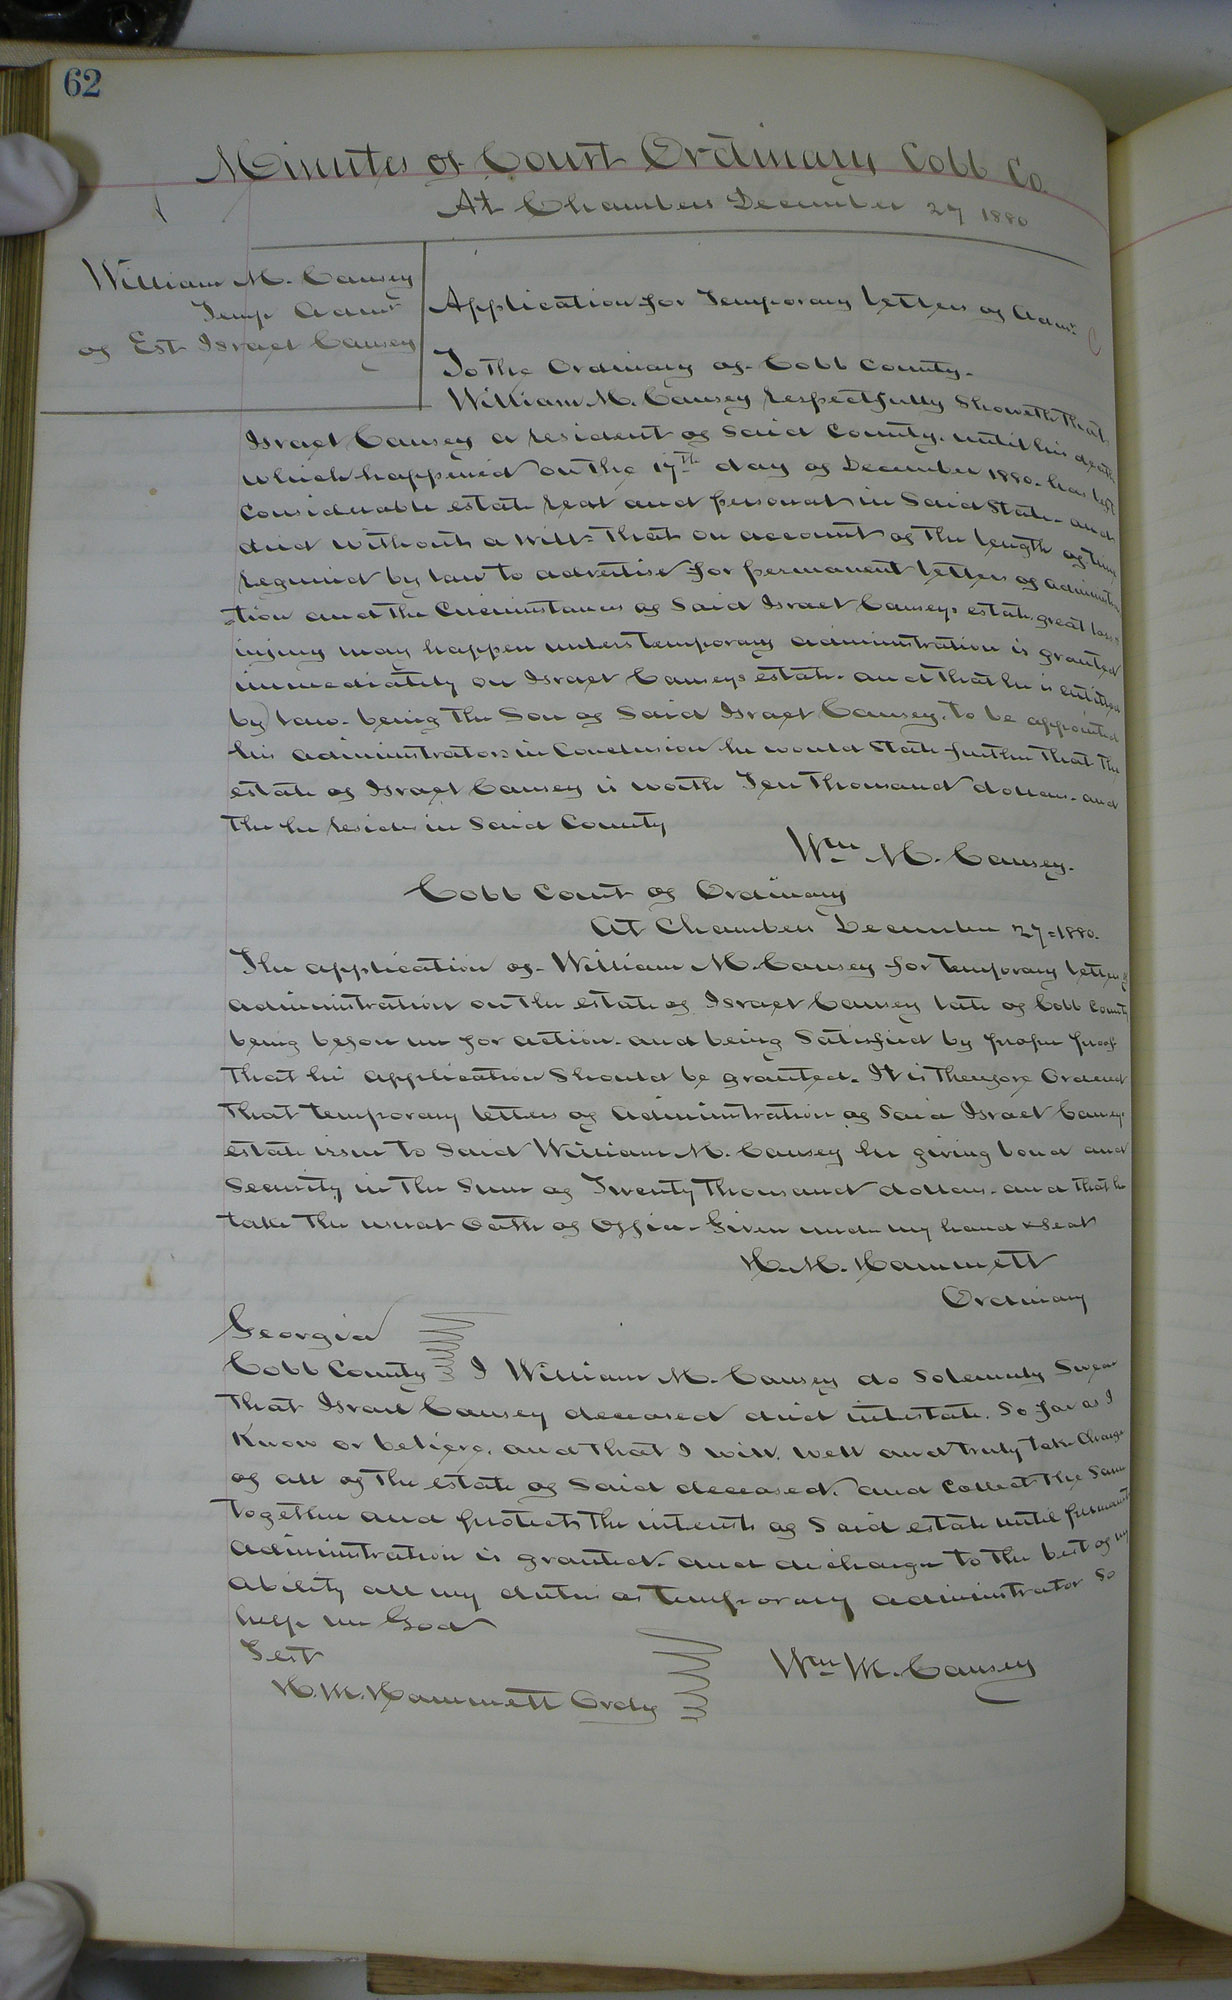 62
Minutes of Court Ordinary Cobb Co.
At Chambers December 27 1880
William M. Causey
Temp Admr
of Est Israel Causey
Application for Temporary Letters of Admr.
To the Ordinary of Cobb County.
William M. Causey respectfully showeth that
Israel Causey a resident of Said County. until his death
which happened on the 17th day of December 1880. has left
Considerable estate real and personal in Said State. and
died without a Will. That on account of the length of time
required by law to advertise for permanent letters of administra
-tion and the Circumstances of Said Israel Causeys estate, great loss &
injury may happen unless temporary administration is granted
immediately on Israel Causeys estate. and that he is entitled
by law. being the Son of Said Israel Causey. to be appointed
his administrator in Conclusion he would State further that the
estate of Israel Causey is worth Ten Thousand dollars. and
the he resides in Said County
Wm M. Causey.
Cobb Court of Ordinary
At Chambers December 27-1880.
The application of William M. Causey for temporary letters of
administration on the estate of Israel Causey late of Cobb County
being before me for action. and being Satisfied by proper proof
that his application Should be granted. It is Therefore Ordered
that temporary letters of administration of Said Israel Causeys
estate issue to Said William M. Causey he giving bond and
Security in the Sum of Twenty thousand dollars. and that he
take the usual Oath of Office. Given under my hand & Seal
H. M. Hammett
Ordinary
Georgia
Cobb County I William M. Causey do Solemnly Swear
that Israel Causey deceased died intestate. So far as I
Know or believe. and that I will. well and truly take Charge
of all of the estate of Said deceased. and Collect the Same
together and protect the interests of Said estate until permanent
administration is granted. and discharge to the best of my
ability all my duties as temporary administrator So
help me God
Test
H. M. Hammett Ordy
Wm M. Causey